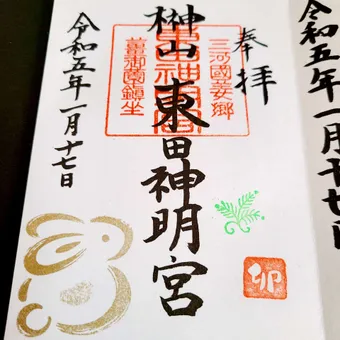 奉拝
三河國薑郷
薑御園鎮坐
榊山 東田神明宮
令和五年一月十七日
卯
令和五年一月十七日